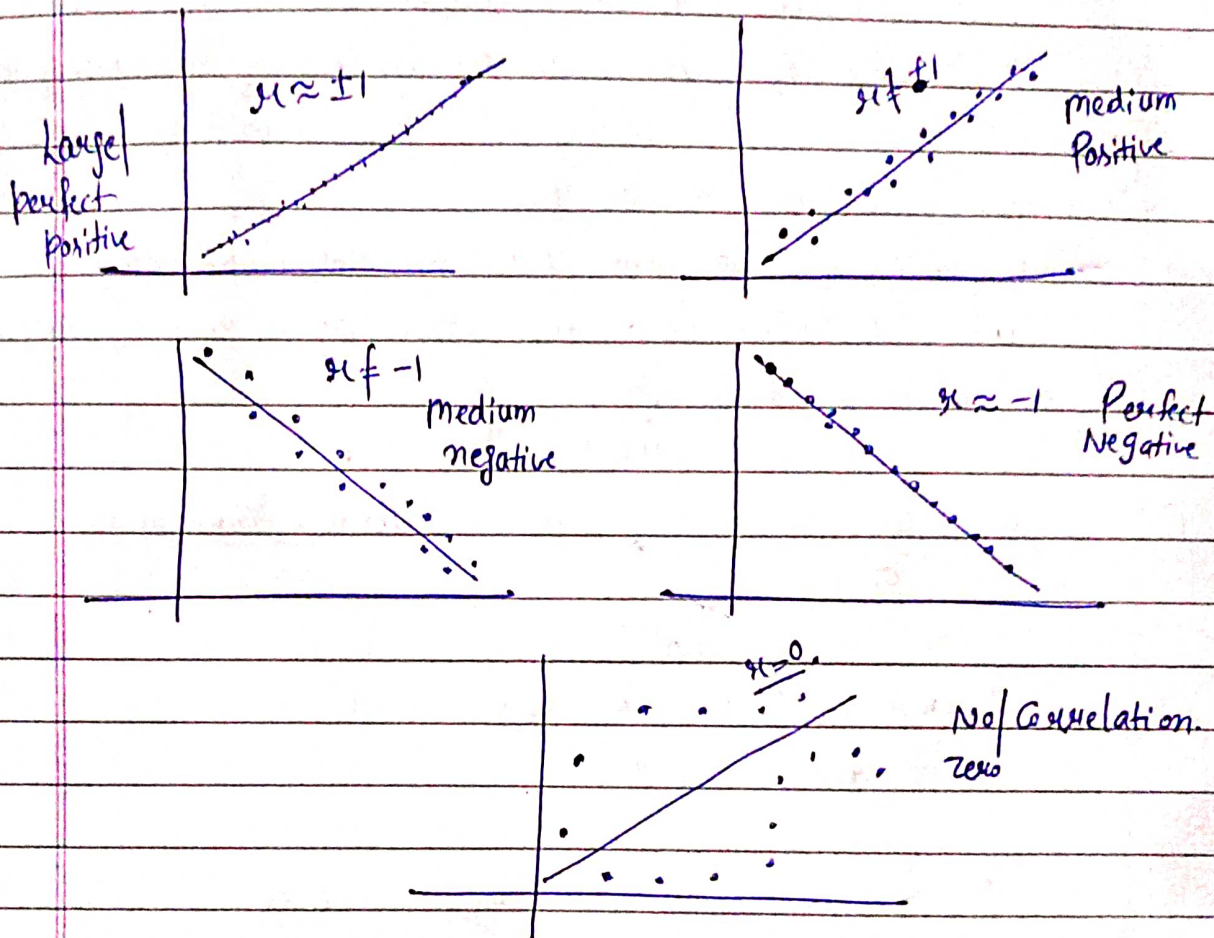 r ≈ ±1
Large/
perfect
positive
r ≠ +1
medium
Positive
r ≠ -1
medium
negative
r ≈ -1
Perfect
Negative
r=0
No/Correlation.
zero